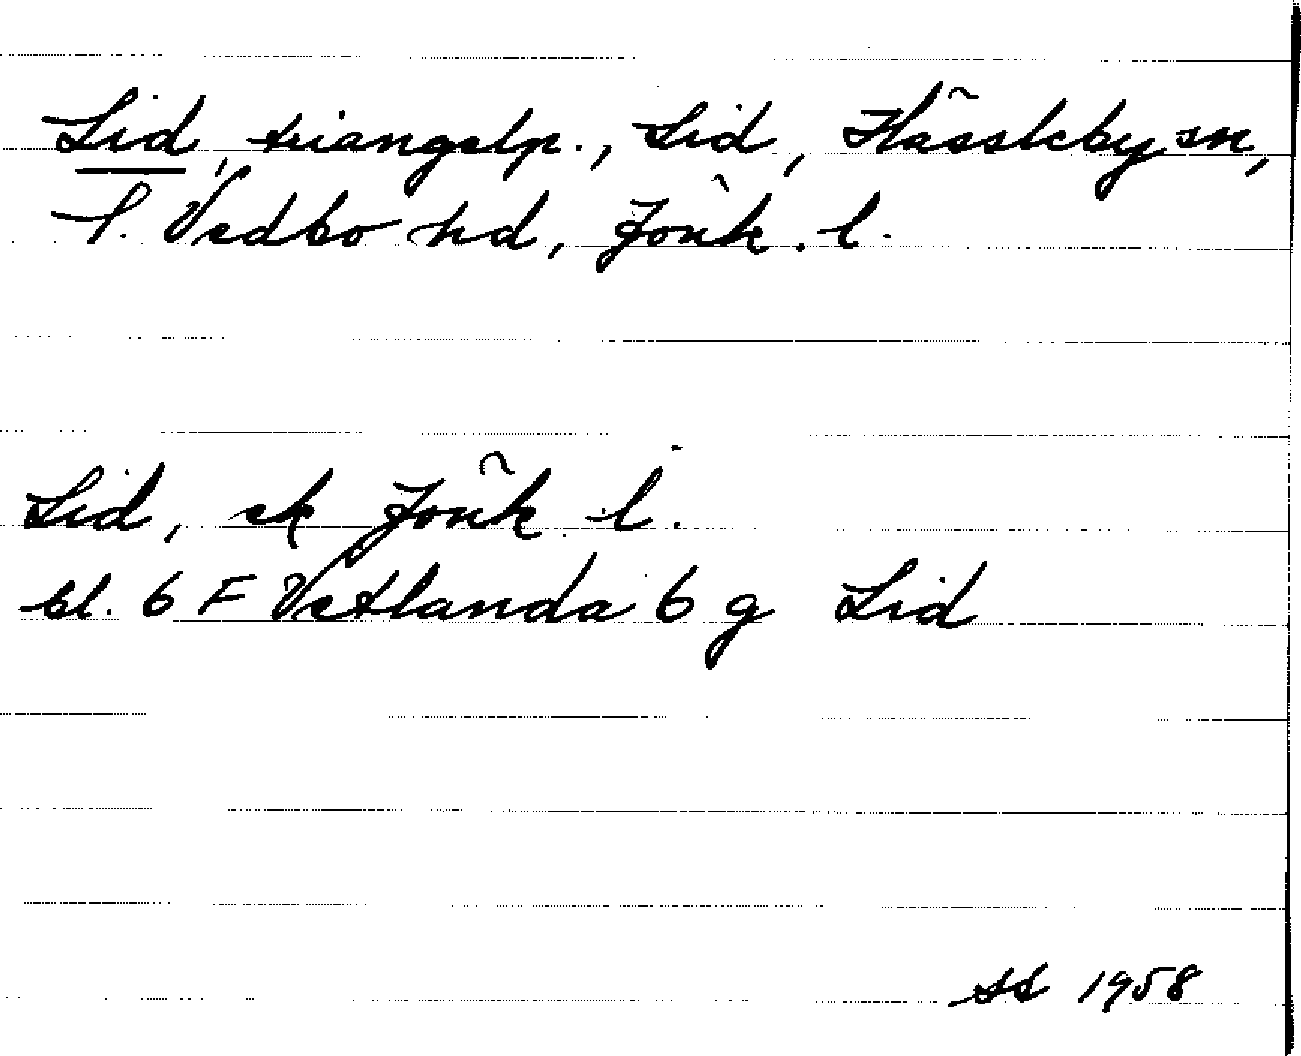 Lid, triangelp., Lid, Hässleby sn,
S. Vedbo hd, Jönk. l.
Lid, ek Jönk. l.
bl. 6 F Vetlanda 6 g Lid
SS 1958